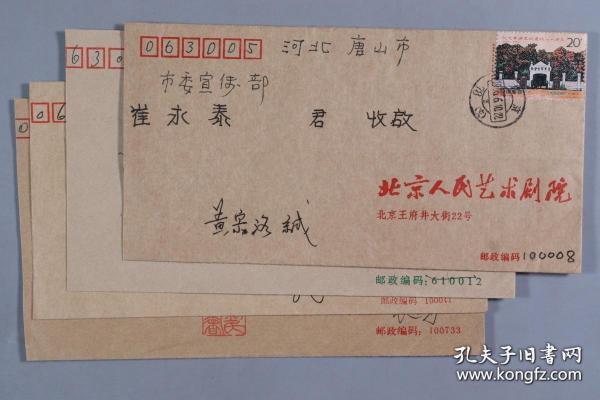 063005
河北 唐山市
市委宣传部
崔永泰 君 收啟
黄宗洛 缄
北京人民艺术剧院
北京王府井大街22号
邮政编码 100008
20分
630
邮政编码: 610012
06
邮政编码
0
邮政编码: 100733
孔夫子旧书网
www.kongfz.com